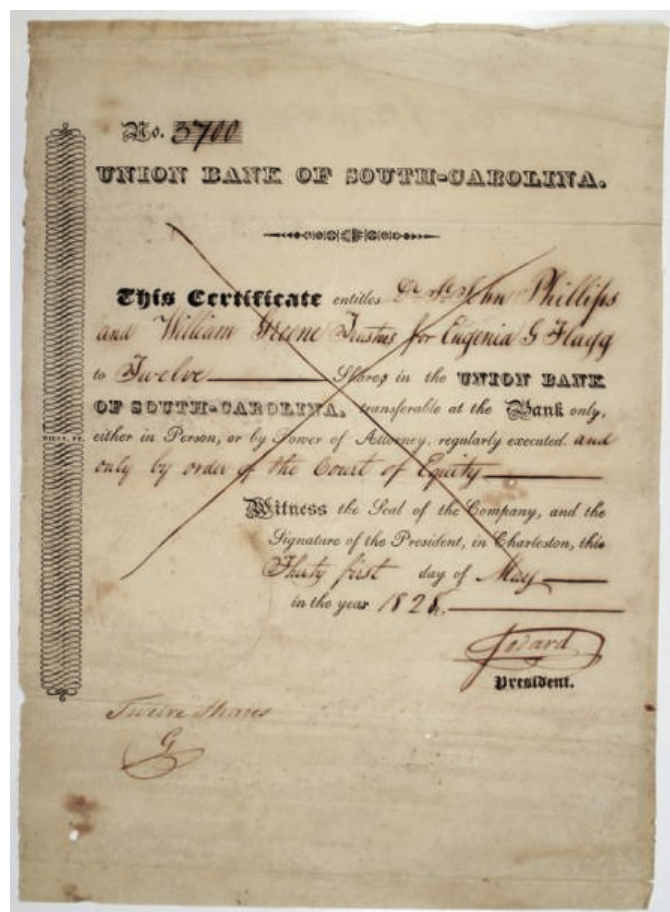 No. 3700
UNION BANK OF SOUTH-CAROLINA.
This Certificate entitles John Phillips
and William Greene Trustees for Eugenia G Flagg
to Twelve Shares in the UNION BANK
OF SOUTH-CAROLINA, transferable at the Bank only,
either in Person, or by Power of Attorney, regularly executed. and
only by order of the Court of Equity
Witness the Seal of the Company, and the
Signature of the President, in Charleston, this
Thirty first day of May
in the year 1828.
President.
Twelve Shares
G